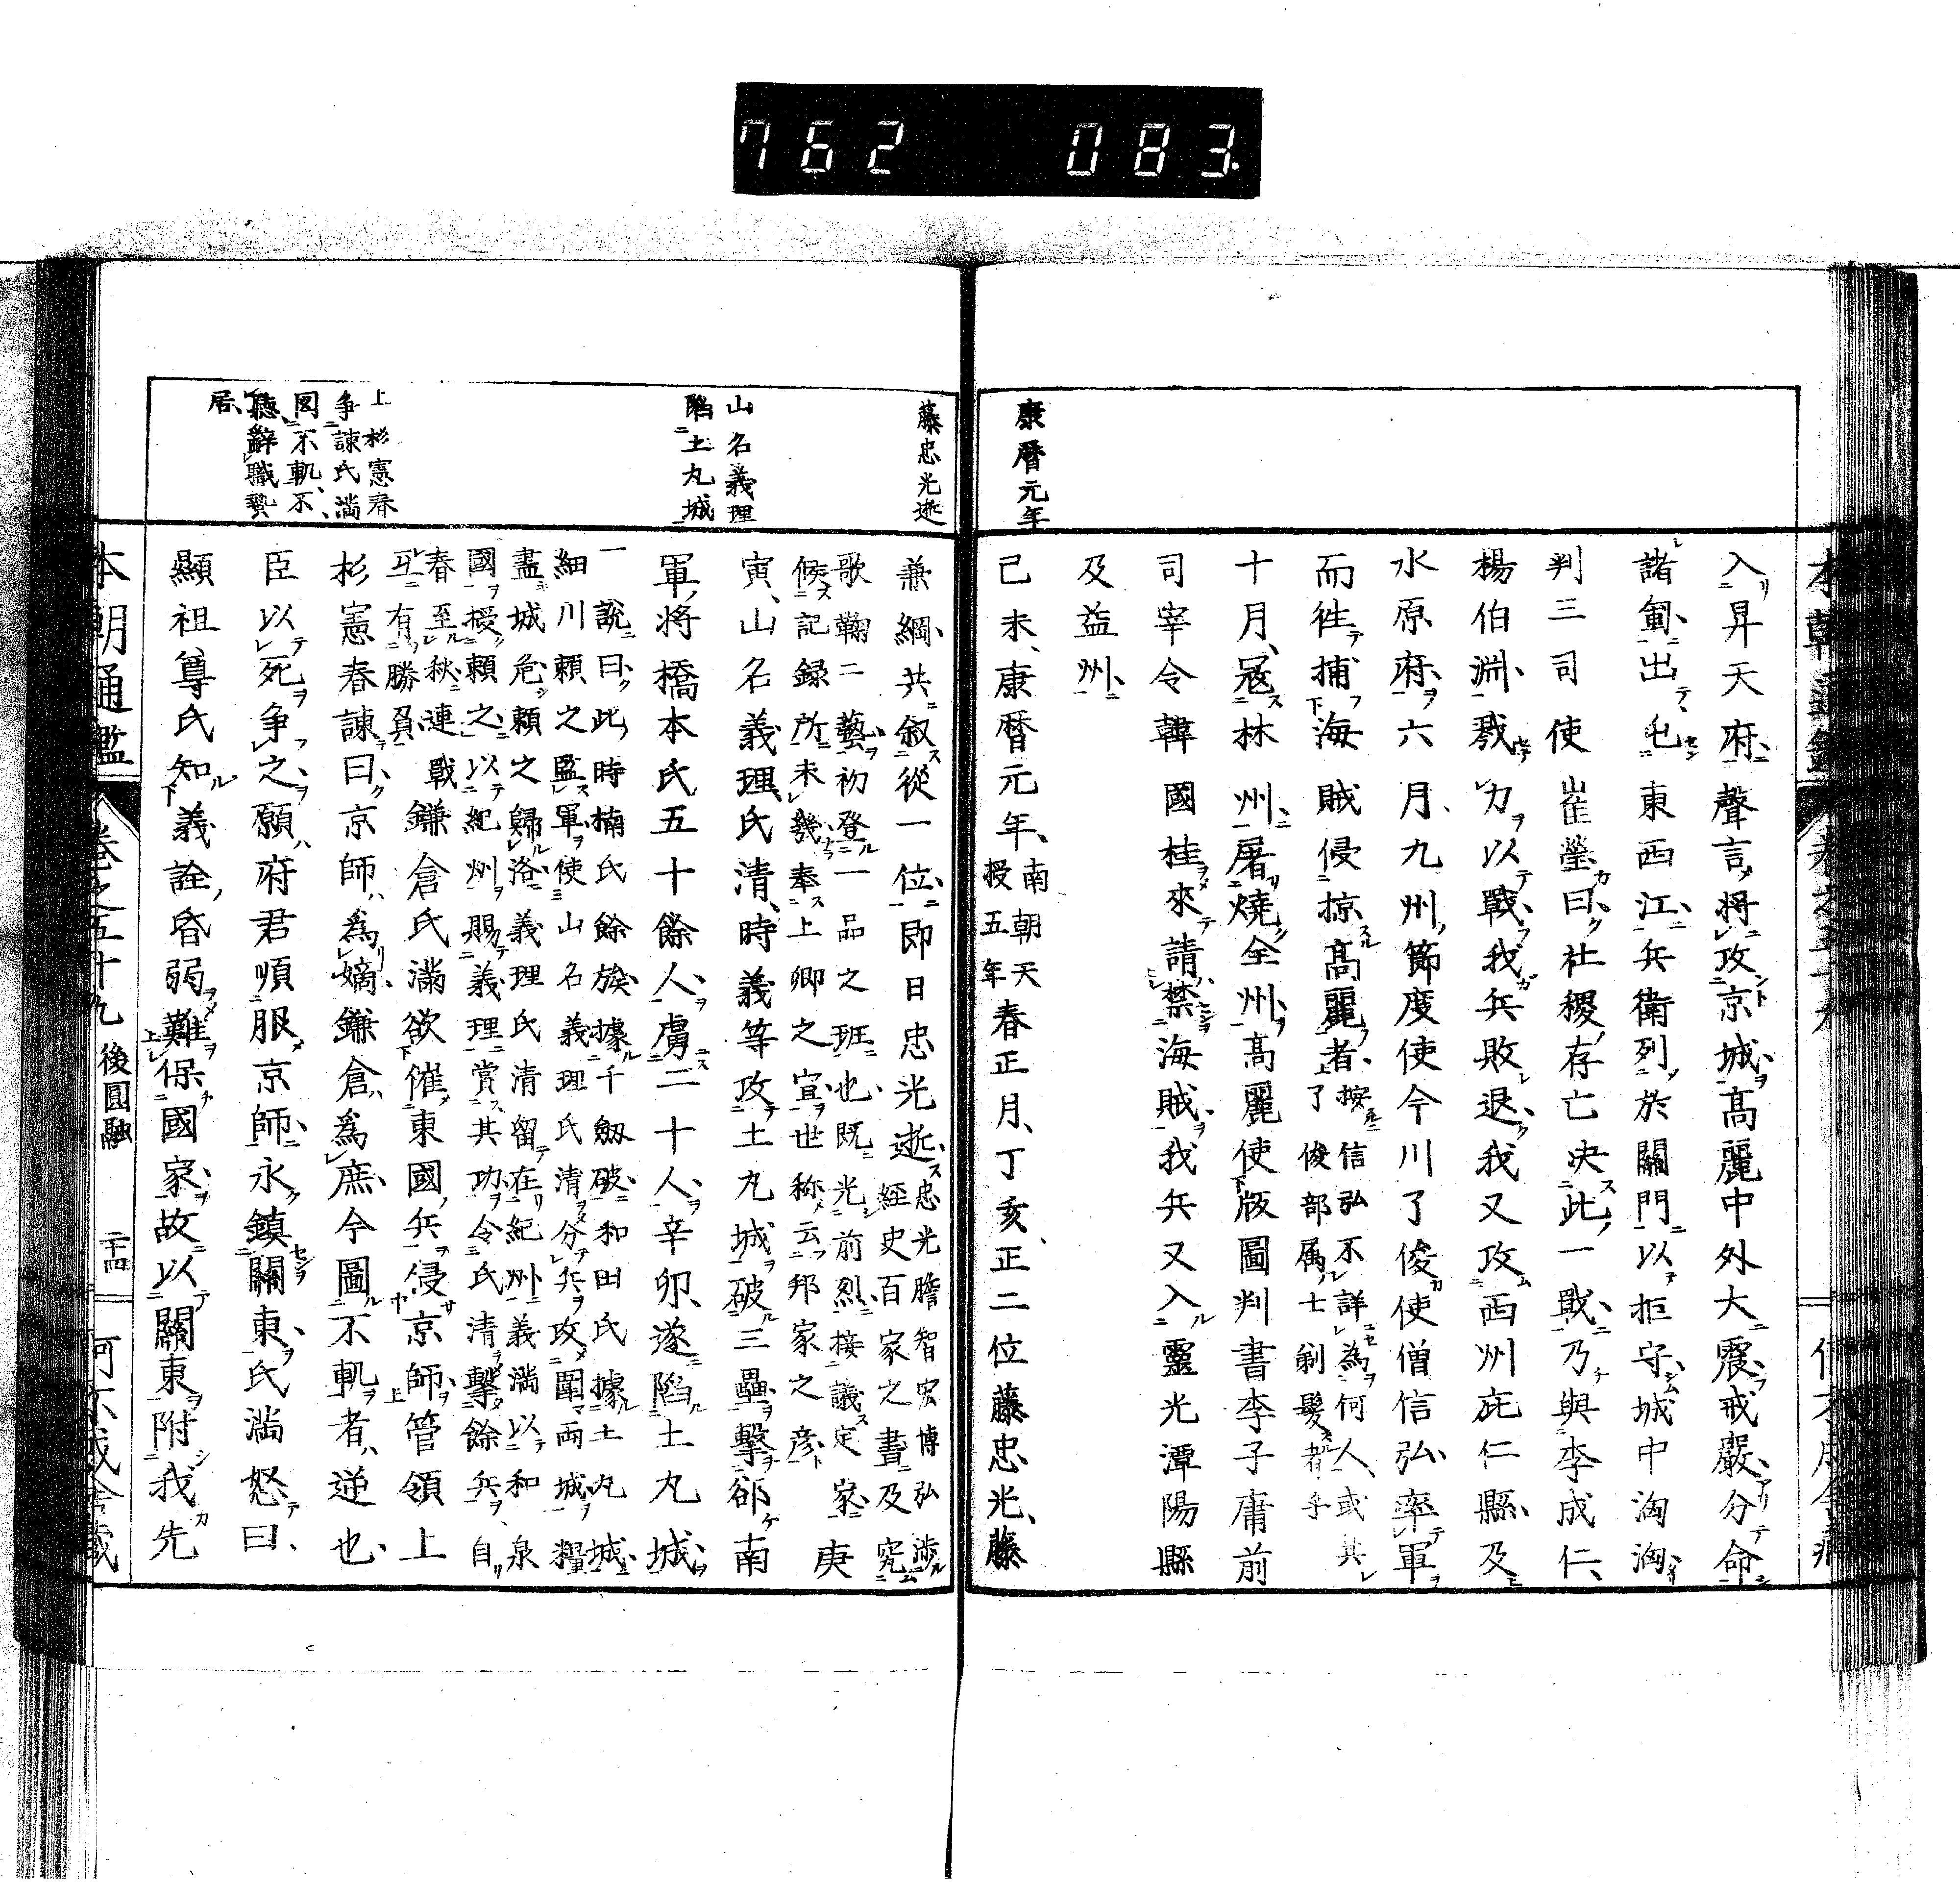 762 083
康暦元年
入昇天府聲言將攻京城高麗中外大震戒嚴分命
諸軍出屯東西江兵衛列於關門以拒守城中洶洶
判三司使崔瑩曰社稷存亡決此一戰乃與李成仁
楊伯淵戮力以戰我兵敗退我又攻西州庇仁縣及
水原府六月九州節度使今川了俊使僧信弘率軍
而徃捕海賊侵掠高麗者按信弘不詳為何人或其
了俊部属士剃髮者乎
十月冦林州屠燒全州高麗使版圖判書李子庸前
司宰令韓國桂來請禁海賊我兵又入靈光潭陽縣
及益州
己未康暦元年南朝天
授五年春正月丁亥正二位藤忠光藤
藤忠光逝
山名義理
陷土丸城
上杉憲春
争諫氏満
圖不軌不
聴辭職蟄
居
兼綱共叙從一位即日忠光逝忠光膽智宏博弘渉
經史百家之書及究
歌鞠二藝初登一品之班也既光前烈接議定家
候記録所未幾奉上卿之宣世称云邦家之彦庚
寅山名義理氏清時義等攻土丸城破三壘擊郤南
軍將橋本氏五十餘人虜二十人辛卯遂陷土丸城
一說曰此時楠氏餘族據千劔破和田氏據土丸城
細川頼之監軍使山名義理氏清分兵攻圍兩城糧
盡城危頼之歸洛義理氏清留在紀州義満以和泉
國授頼之以紀州賜義理賞其功令氏清擊餘兵自
春至秋連戰
互有勝負鎌倉氏滿欲催東國兵侵京師管領上
杉憲春諫曰京師為嫡鎌倉為庶今圖不軌者逆也
臣以死争之願府君順服京師永鎮關東氏満怒曰
顯祖尊氏知義詮昏弱難保國家故以關東附我先
本朝通鑑 卷之五十九 後圓融 二十四